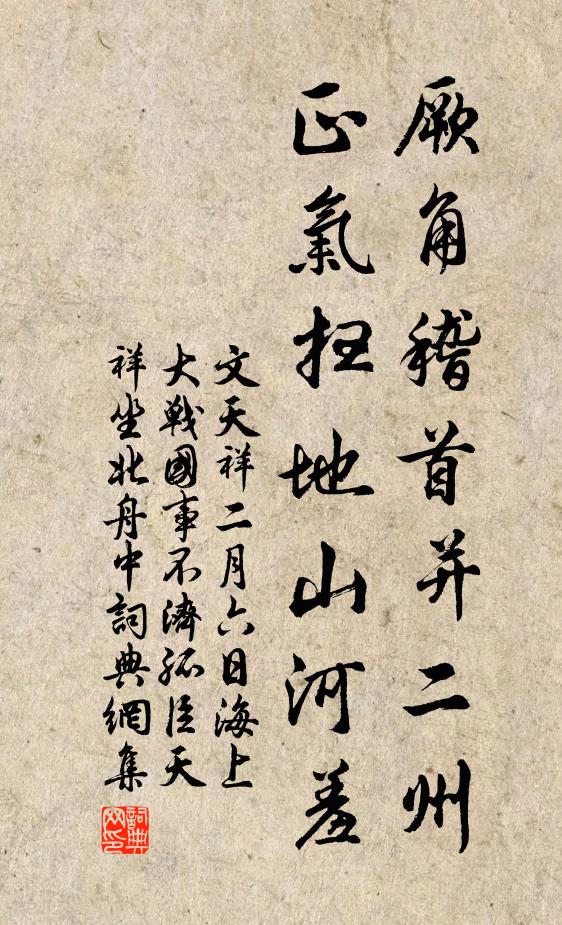 厥角稽首并二州
正氣掃地山河羞
文天祥二月六日海上
大戰國事不濟孤臣天
祥坐北舟中詞典網集
詞典网印